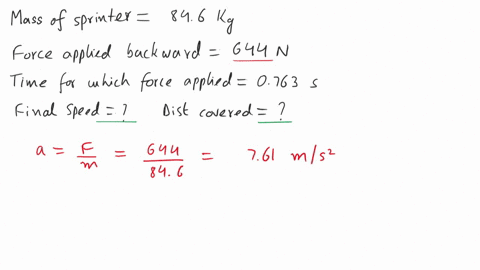 Mass of sprinter = 84.6 Kg
Force applied backward = 644 N
Time for which force applied = 0.763 s
Final speed = ? Dist covered = ?
a = F/m = 644/84.6 = 7.61 m/s²